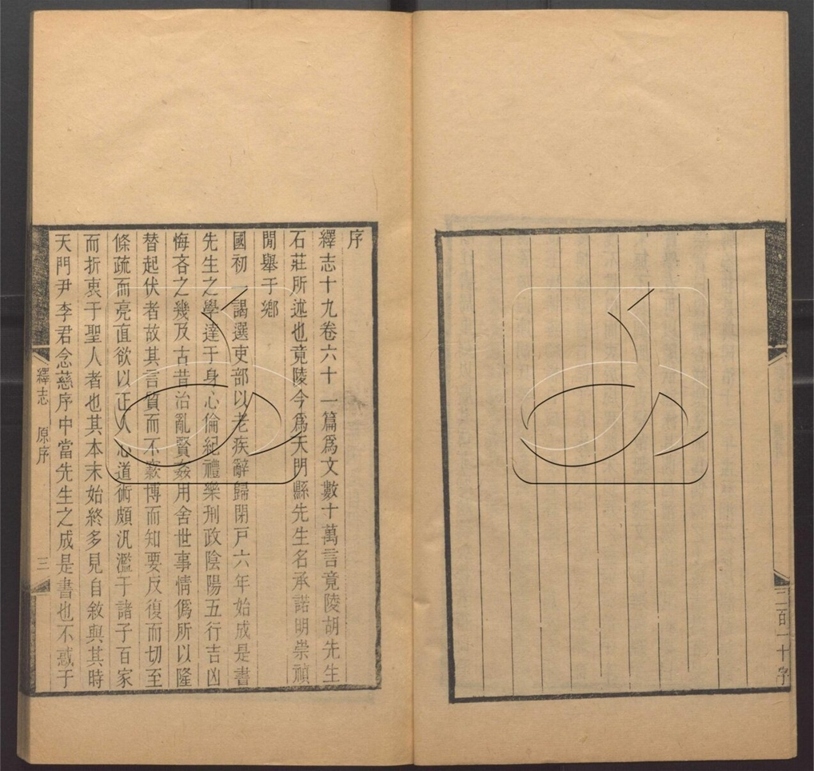 二百一十字
序
繹志十九卷六十一篇爲文數十萬言竟陵胡先生
石莊所述也竟陵今爲天門縣先生名承諾明崇禎
閒舉于鄉
國初謁選吏部以老疾辭歸閉戶六年始成是書
先生之學達于身心倫紀禮樂刑政陰陽五行吉凶
悔吝之幾及古昔治亂賢姦用舍世事情僞所以隆
替起伏者故其言質而不蔽博而知要反復而切至
條疏而亮直欲以正人心道術頗汎濫于諸子百家
而折衷于聖人者也其本末始終多見自敘與其時
天門尹李君念慈序中當先生之成是書也不惑子
繹志 原序 三